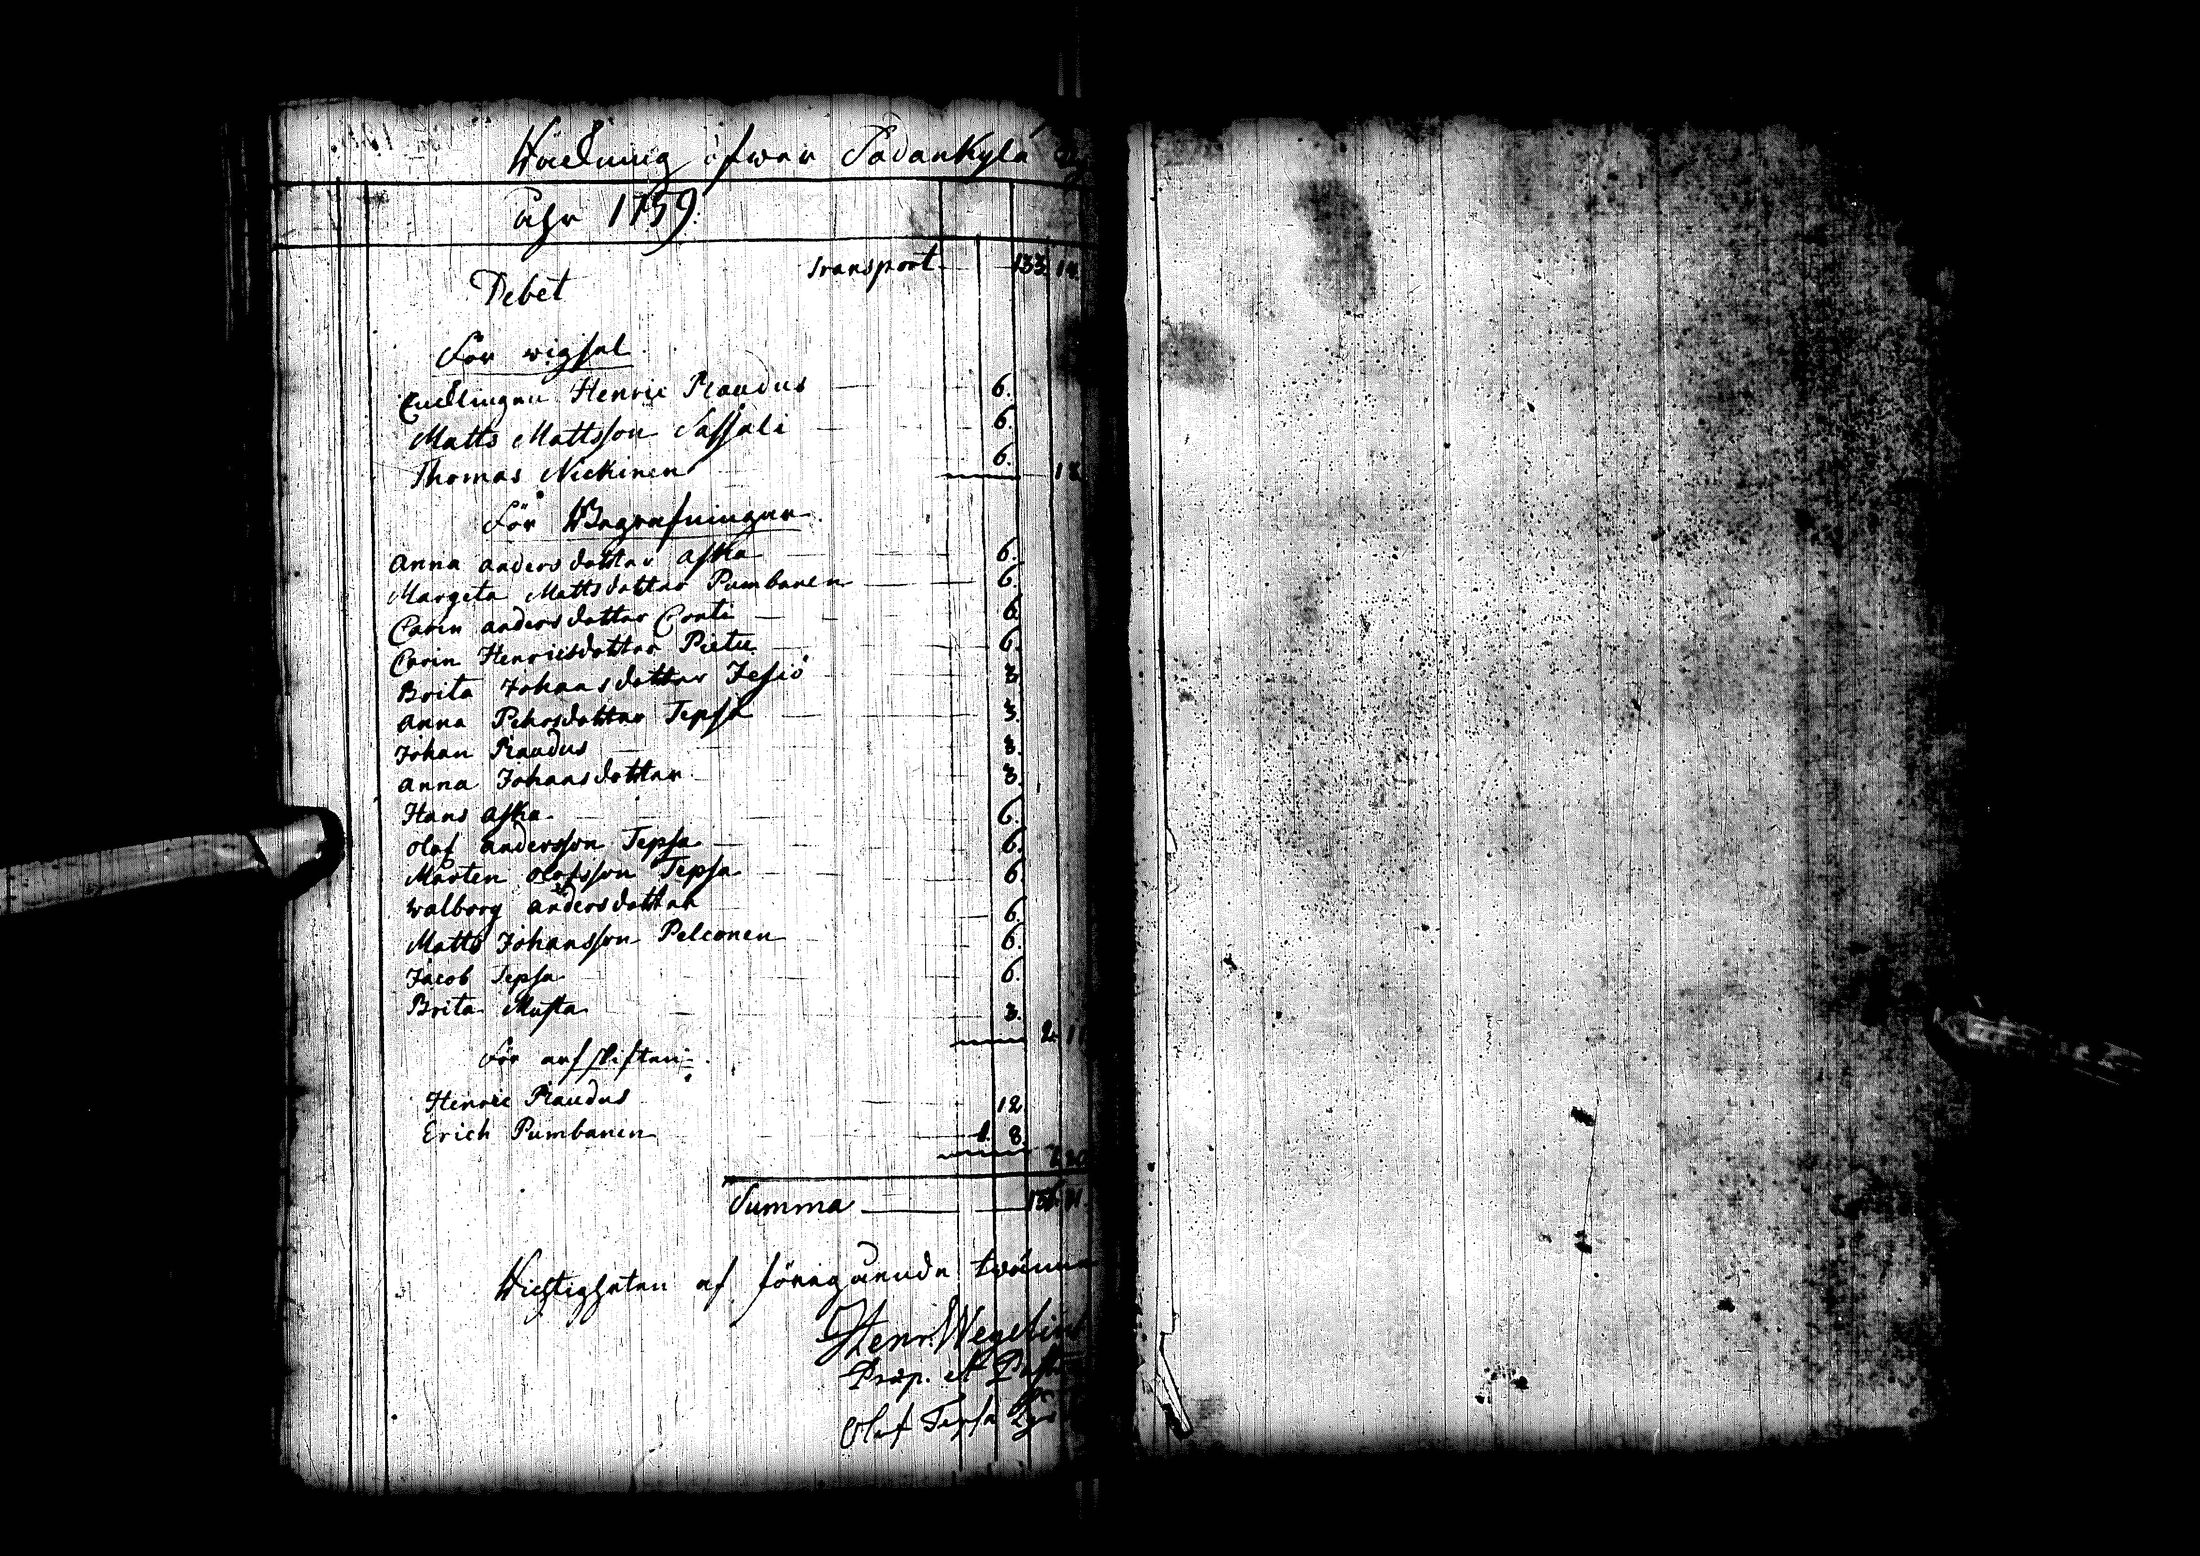 Räckning öfwer Sodankylä
åhr 1759.
Transport 133. 14.
Debet
För wigsel
Encklingen Henric Raudus 6.
Matts Mattsson Sassali 6.
Thomas Nickinen 6. 18
För Begrafningar
Anna Andersdotter Aska 6.
Margeta Mattsdotter Pumbanen 6.
Carin Andersdotter Conti 6.
Carin Henricsdotter Pietu 6.
Brita Johansdotter Jesiö 3
Anna Pehrsdotter Tepsa 3.
Johan Raudus 3.
Anna Johansdotter 3.
Hans Aska 6.
Olof Andersson Tepsa 6.
Mårten Olofsson Tepsa 6.
Walborg Andersdotter 6.
Matts Johansson Pelconen 6.
Jacob Tepsa 6.
Brita Musta 3.
2 11
För arfskiften
Henric Raudus 12
Erich Pumbanen 1. 8.
Summa
Wichtigheten af föregående twänne
Henr. Wegelius
Præp. et Past
Olof Tepsa